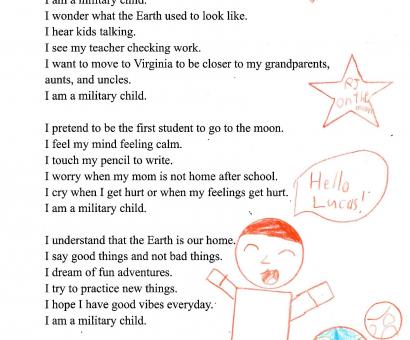 I am a military child.
I wonder what the Earth used to look like.
I hear kids talking.
I see my teacher checking work.
I want to move to Virginia to be closer to my grandparents,
aunts, and uncles.
I am a military child.
RJ
on the
moon
I pretend to be the first student to go to the moon.
I feel my mind feeling calm.
I touch my pencil to write.
I worry when my mom is not home after school.
I cry when I get hurt or when my feelings get hurt.
I am a military child.
Hello
Lucas!
I understand that the Earth is our home.
I say good things and not bad things.
I dream of fun adventures.
I try to practice new things.
I hope I have good vibes everyday.
I am a military child.